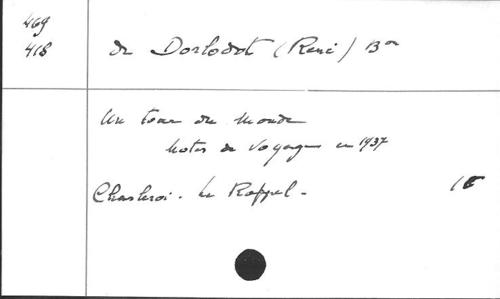 469
418
de Dorlodot (René) Bon
Un tour du Monde
Notes de Voyages en 1937
Charleroi. Le Rappel.